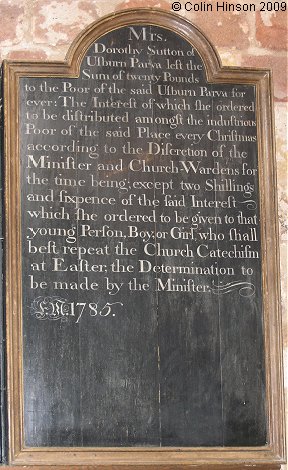 © Colin Hinson 2009
Mrs.
Dorothy Sutton of
Uſburn Parva left the
Sum of twenty Pounds
to the Poor of the said Uſburn Parva for
ever: The Intereſt of which ſhe ordered
to be diſtributed amongſt the induſtrious
Poor of the said Place every Chriſtmas
according to the Diſcretion of the
Miniſter and Church-Wardens for
the time being; except two Shillings
and ſixpence of the ſaid Intereſt
which ſhe ordered to be given to that
young Perſon, Boy, or Girl, who ſhall
beſt repeat the Church Catechiſm
at Eaſter; the Determination to
be made by the Miniſter.
1785.